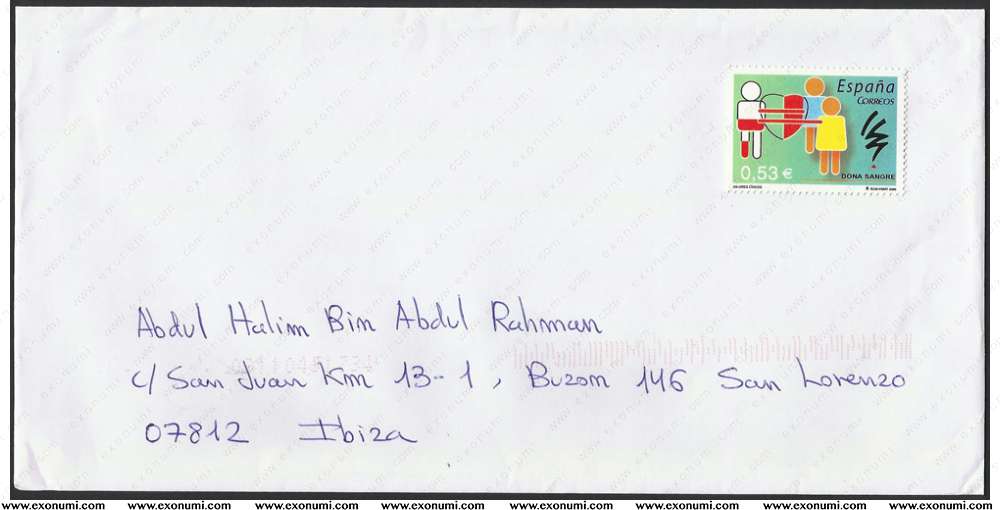 España
CORREOS
0,53 €
DONA SANGRE
VALORES CÍVICOS
Abdul Halim Bin Abdul Rahman
c/ San Juan Km 13-1, Buzom 146 San Lorenzo
07812 Ibiza
www.exonumi.com www.exonumi.com www.exonumi.com www.exonumi.com www.exonumi.com www.exonumi.com www.exonumi.com www.exonumi.com